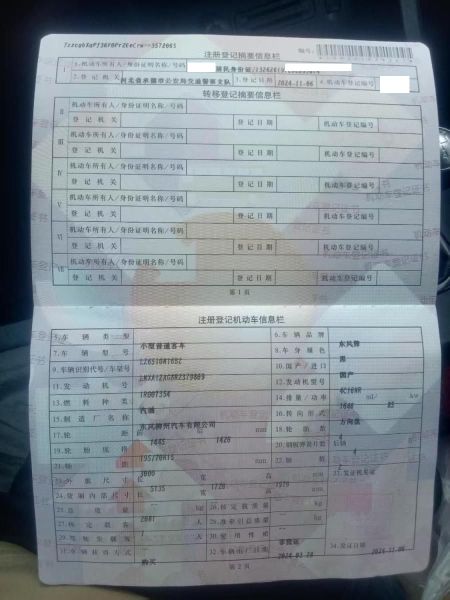 注册登记摘要信息栏
编号:
1.机动车所有人/身份证明名称/号码 居民身份证/
2.登记机关 河北省承德市公安局交通警察支队 3.登记日期 2024-11-06 4.机动车登记编号
转移登记摘要信息栏
II 机动车所有人/身份证明名称/号码
登记机关 登记日期 机动车登记编号
III 机动车所有人/身份证明名称/号码
登记机关 登记日期 机动车登记编号
IV 机动车所有人/身份证明名称/号码
登记机关 登记日期 机动车登记编号
V 机动车所有人/身份证明名称/号码
登记机关 登记日期 机动车登记编号
VI 机动车所有人/身份证明名称/号码
登记机关 登记日期 机动车登记编号
VII 机动车所有人/身份证明名称/号码
登记机关 登记日期 机动车登记编号
第1页
注册登记机动车信息栏
5.车辆类型 小型普通客车 6.车辆品牌 东风牌
7.车辆型号 8.车身颜色 黑
9.车辆识别代号/车架号 10.国产/进口 国产
11.发动机号 12.发动机型号
13.燃料种类 汽油 14.排量/功率 ml/ kw
15.制造厂名称 东风柳州汽车有限公司 16.转向形式 方向盘
17.轮距 前 1445 后 1420 mm 18.轮胎数 4
19.轮胎规格 195/70R15 20.钢板弹簧片数
21.轴距 3000 mm 22.轴数
23.外廓尺寸 长 5135 宽 1720 高 mm 33.发证机关章
24.货厢内部尺寸 长 宽 高 mm
25.总质量 kg 26.核定载质量 kg
27.核定载客 人 28.准牵引总质量 kg
29.驾驶室载客 人 30.使用性质 非营运
31.车辆获得方式 购买 32.车辆出厂日期 34.发证日期 2024-11-06
第2页